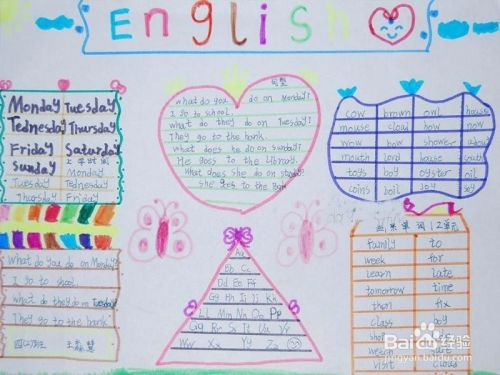 English
Monday Tuesday
Tednesday Thursday
Friday Saturday
Sunday 上学时间
Tuesday Monday
Tednesday
Thursday Friday
What do you do on Monday?
I go to shool.
what do they do on Tuesday?
They go to the bank.
句型
what do you do on Monday?
I go to school.
what do they do on Tuesday?
They go to the bank.
what does he do on sunday?
He goes to the library.
What does she do on
she goes to the Bank
Aa
Bb Cc
Dd Ee Ff
Gg Hh Ii Jj Kk
Ll Mm Nn Oo Pp
Qq Rr Ss Tt Uu Vv
Ww Xx Yy Zz
cow brown owl house
mouse cloud how now
wow how shower about
mouth lord house south
toys boy oyster oil
coins boil joy
单词 1 2单元
family to
week for
learn late
tomorrow time
then fix
class boy
visit clouds
Baidu 百度 经验
jingyan.baidu.com